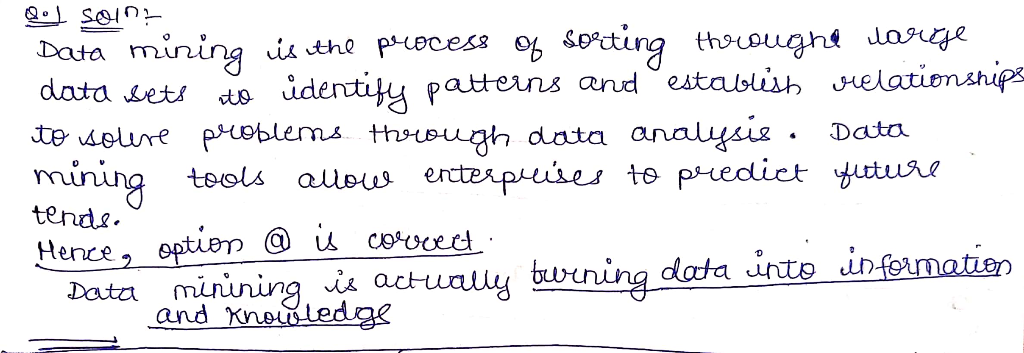 Q.1 Soln:-
Data mining is the process of sorting throught large
data sets to identify patterns and establish relationships
to solve problems through data analysis. Data
mining tools allow enterprises to predict future
tends.
Hence, option @ is correct.
Data minining is actually turning data into information
and Knowledge